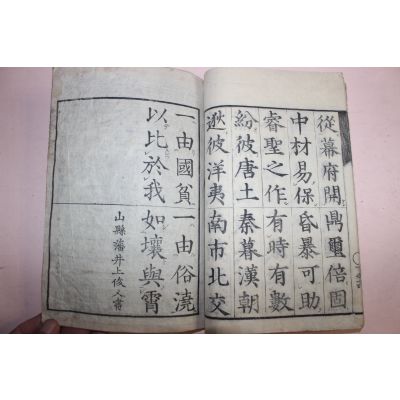 從幕府開鼎璽倍固
中材易保昏暴可助
睿聖之作有時有數
紛彼唐土秦暮漢朝
逖彼洋夷南市北交
一由國貧一由俗澆
以比於我如壤與霄
山縣藩井上俊又書